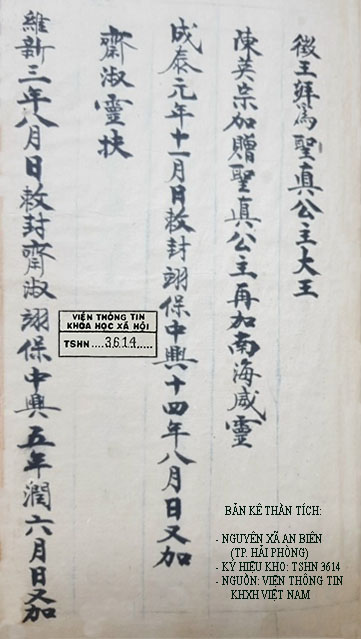 徵王拜為聖真公主大王
陳英宗加贈聖真公主再加南海威靈
成泰元年十一月日敕封翊保中興十四年八月日又加
齋淑靈扶
維新三年八月日敕封齋淑翊保中興五年潤六月日又加
VIỆN THÔNG TIN
KHOA HỌC XÃ HỘI
TSHN ....3614.....
BẢN KÊ THẦN TÍCH:
- NGUYÊN XÃ AN BIÊN
(TP. HẢI PHÒNG)
- KÝ HIỆU KHO: TSHN 3614
- NGUỒN: VIỆN THÔNG TIN
KHXH VIỆT NAM